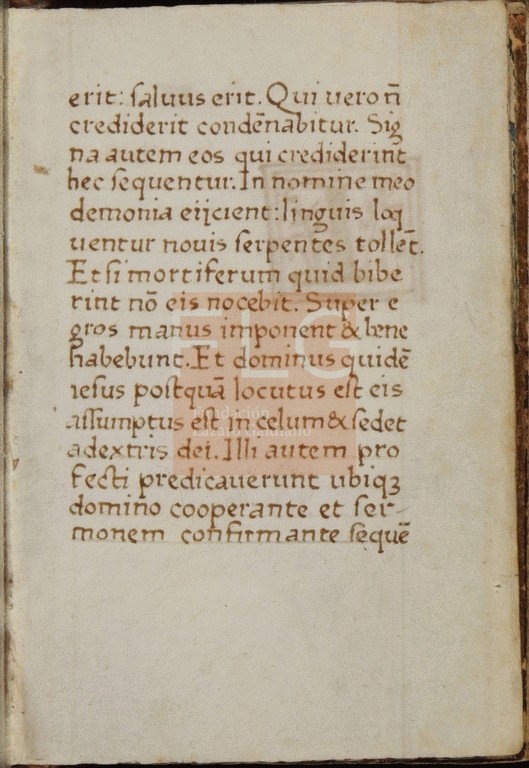 erit: ſaluus erit. Qui uero n̄
crediderit condēnabitur. Sig
na autem eos qui crediderint
hec ſequentur. In nomine meo
demonia eiicient: linguis loq
uentur nouis ſerpentes tollēt.
Et ſi mortiferum quid bibe
rint nō eis nocebit. Super e
gros manus imponent & bene
habebunt. Et dominus quidē
iesus poſtquā locutus eſt eis
aſſumptus eſt in celum & ſedet
adextris dei. Illi autem pro
fecti predicauerunt ubiqꝫ
domino cooperante et ſer-
monem confirmante ſequē
FLG
Fundación
Lázaro Galdiano